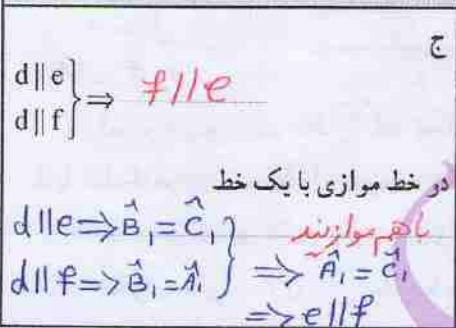 ج
d || e
d || f } ⇒ f // e
در خط موازی با یک خط
باهم موازیند
d || e ⇒ B̂₁ = Ĉ₁
d || f => B̂₁ = Â₁ } => Â₁ = Ĉ₁
=> e || f